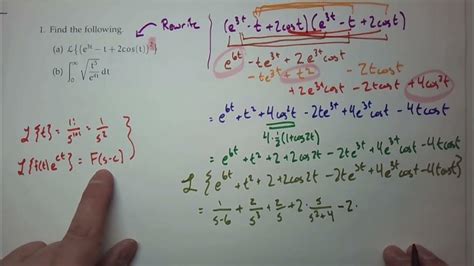 1. Find the following.
(a) ℒ{(e^{3t} − t + 2cos(t))^2}
(b) ∫_0^∞ √(t^3/e^{4t}) dt
Rewrite
(e^{3t} − t + 2cost)(e^{3t} − t + 2cost)
e^{6t} − te^{3t} + 2e^{3t}cost
− te^{3t} + t^2 − 2tcost
+ 2e^{3t}cost − 2tcost + 4cos^2t
= e^{6t} + t^2 + 4cos^2t − 2te^{3t} + 4e^{3t}cost − 4tcost
4·½(1+cos2t)
= e^{6t} + t^2 + 2 + 2cos2t − 2te^{3t} + 4e^{3t}cost − 4tcost
ℒ{e^{6t} + t^2 + 2 + 2cos2t − 2te^{3t} + 4e^{3t}cost − 4tcost}
= 1/(s−6) + 2/s^3 + 2/s + 2·s/(s^2+4) − 2·
ℒ{t} = 1!/s^{1+1} = 1/s^2
ℒ{f(t)e^{ct}} = F(s−c)